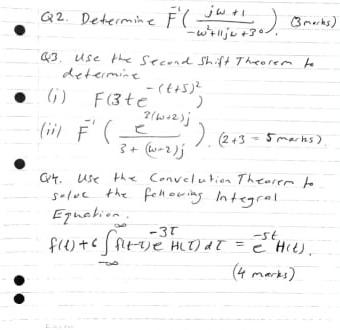 Q2. Determine F⁻¹( (jω + 1) / (-ω² + 11jω + 30) ). (3 marks)
Q3. Use the Second Shift Theorem to
determine
(i) F(3te^{-(t+5)²})
(ii) F⁻¹( e^{2(ω+2)j} / (3 + (ω-2)j) ). (2+3 = 5 marks)
Q4. Use the Convolution Theorem to
solve the following Integral
Equation.
f(t) + 6 ∫_{-∞}^{∞} f(t-τ)e^{-3τ} H(τ) dτ = e^{-5t} H(t).
(4 marks)